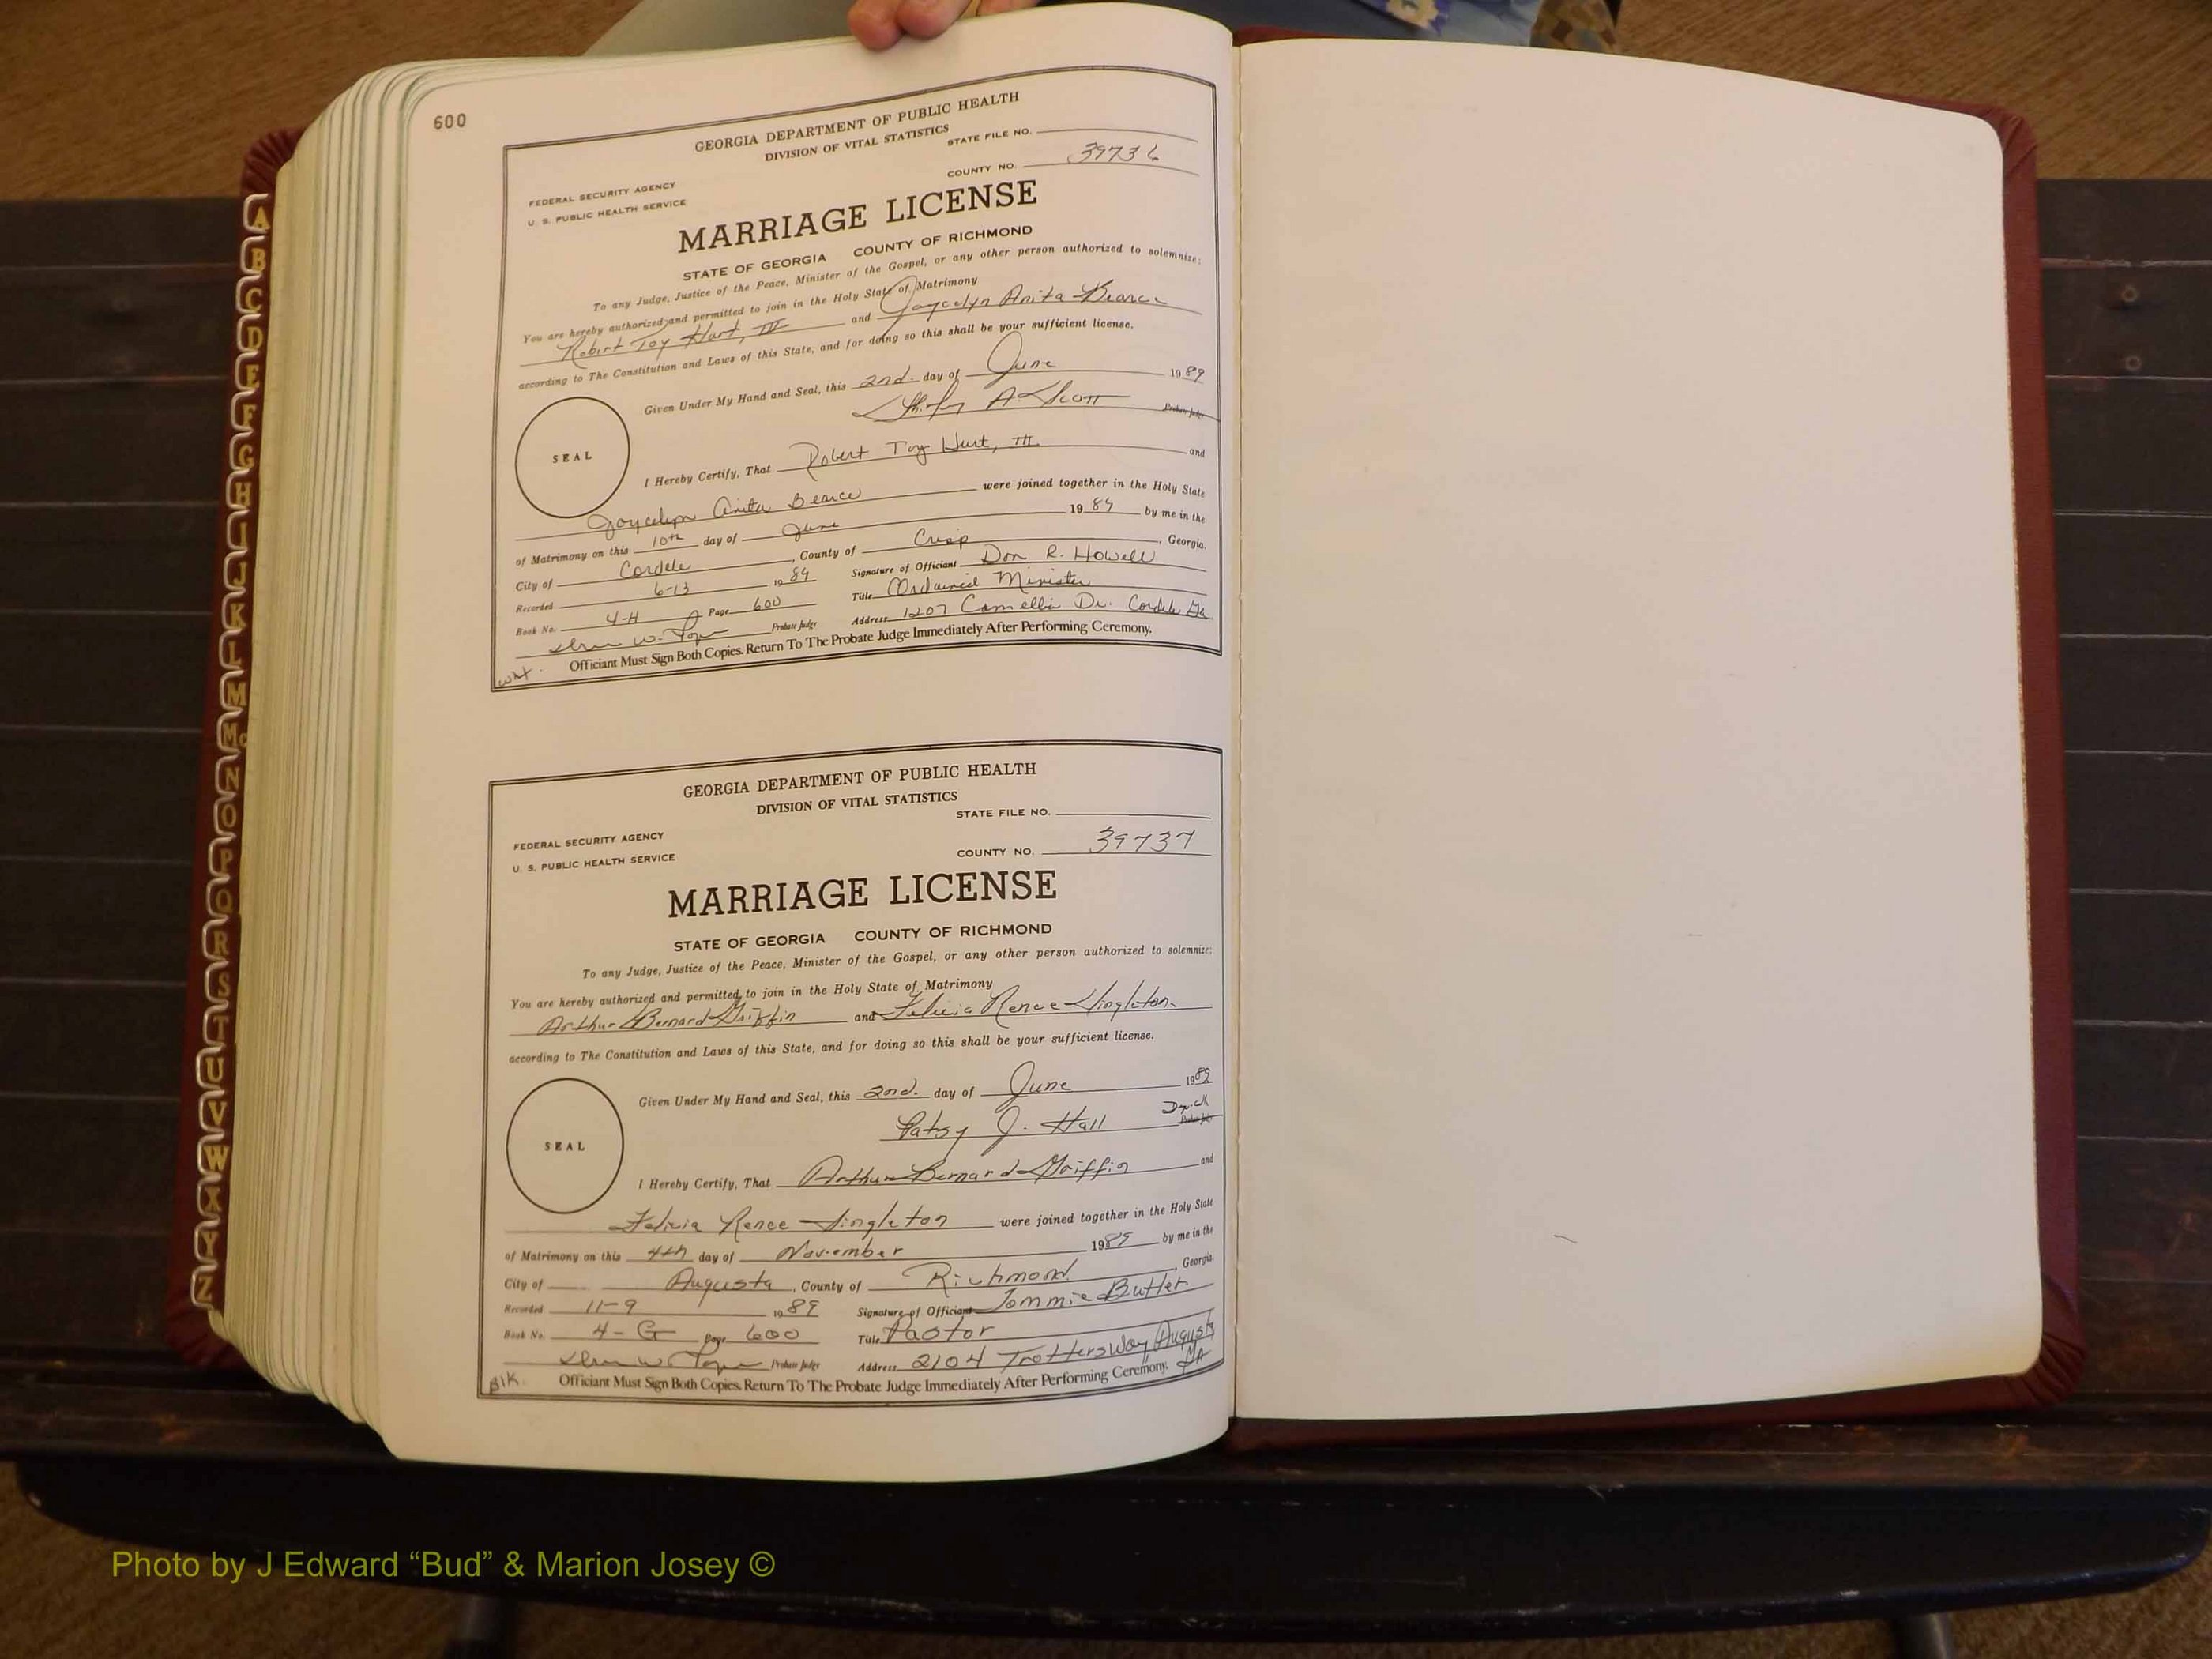 600
GEORGIA DEPARTMENT OF PUBLIC HEALTH
DIVISION OF VITAL STATISTICS
STATE FILE NO.
FEDERAL SECURITY AGENCY
U. S. PUBLIC HEALTH SERVICE
COUNTY NO. 39736
MARRIAGE LICENSE
STATE OF GEORGIA COUNTY OF RICHMOND
To any Judge, Justice of the Peace, Minister of the Gospel, or any other person authorized to solemnize:
You are hereby authorized and permitted to join in the Holy State of Matrimony
Robert Toy Hurt, III and Joycelyn Anita Bearce
according to The Constitution and Laws of this State, and for doing so this shall be your sufficient license.
Given Under My Hand and Seal, this 2nd. day of June 1989
Shirley A. Scott Probate Judge
SEAL
I Hereby Certify, That Robert Toy Hurt, III and
Joycelyn Anita Bearce were joined together in the Holy State
of Matrimony on this 10th day of June 1989 by me in the
City of Cordele, County of Crisp, Georgia.
Recorded 6-13 1989 Signature of Officiant Don R. Howell
Book No. 4-H Page 600 Title Ordained Minister
Probate Judge Address 1207 Camellia Dr. Cordele Ga
Officiant Must Sign Both Copies. Return To The Probate Judge Immediately After Performing Ceremony.
GEORGIA DEPARTMENT OF PUBLIC HEALTH
DIVISION OF VITAL STATISTICS
STATE FILE NO.
FEDERAL SECURITY AGENCY
U. S. PUBLIC HEALTH SERVICE
COUNTY NO. 39737
MARRIAGE LICENSE
STATE OF GEORGIA COUNTY OF RICHMOND
To any Judge, Justice of the Peace, Minister of the Gospel, or any other person authorized to solemnize:
You are hereby authorized and permitted to join in the Holy State of Matrimony
Arthur Bernard Griffin and Felicia Renee Singleton
according to The Constitution and Laws of this State, and for doing so this shall be your sufficient license.
Given Under My Hand and Seal, this 2nd. day of June 1989
Patsy J. Hall Probate Judge
SEAL
I Hereby Certify, That Arthur Bernard Griffin and
Felicia Renee Singleton were joined together in the Holy State
of Matrimony on this 4th day of November 1989 by me in the
City of Augusta, County of Richmond, Georgia.
Recorded 11-9 1989 Signature of Officiant Tommie Butler
Book No. 4-G Page 600 Title Pastor
Probate Judge Address 2104 Trotters Way Augusta GA
Blk. Officiant Must Sign Both Copies. Return To The Probate Judge Immediately After Performing Ceremony.
A
B
C
D
E
F
G
H
I
J
K
L
M
Mc
N
O
P
Q
R
S
T
U
V
W
X
Y
Z
Photo by J Edward “Bud” & Marion Josey ©